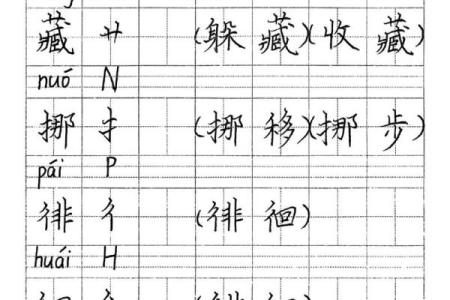 藏 艹 (躲藏)(收藏)
nuó N
挪 扌 (挪移)(挪步)
pái P
徘 彳 (徘徊)
huái H